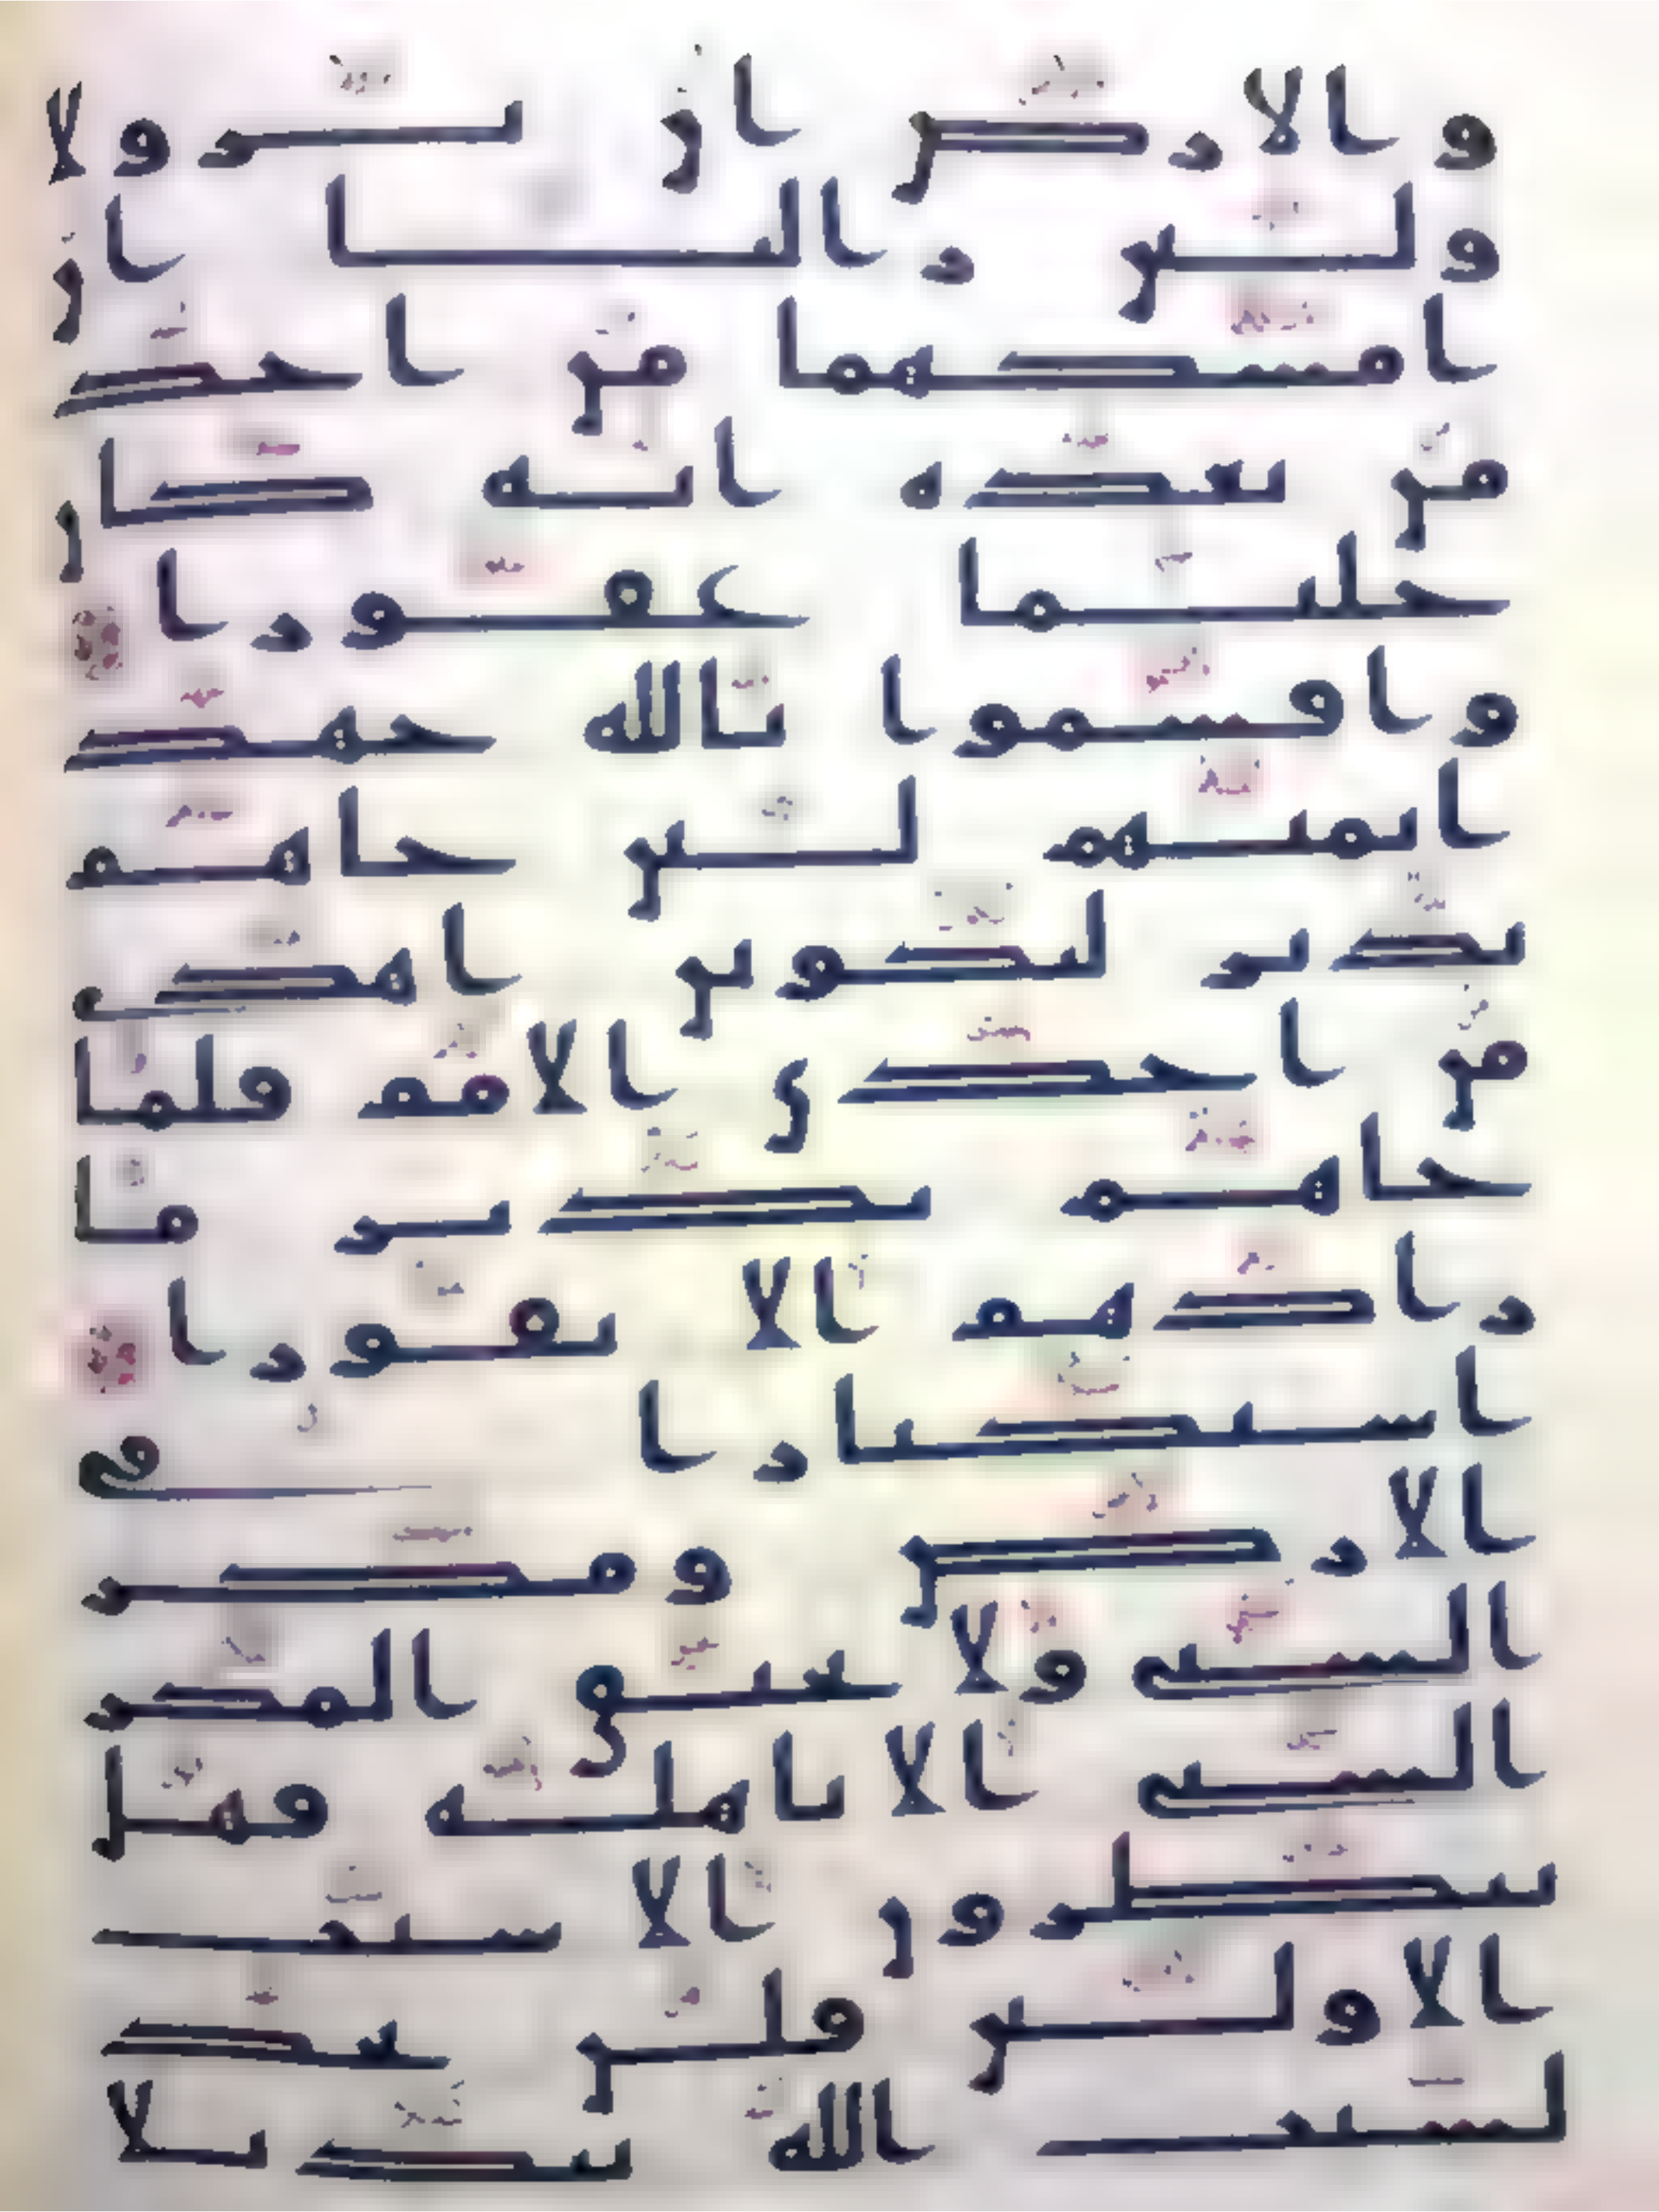 والارض ان تزولا
ولين زالتا ان
امسكهما من احد
من بعده انه كان
حليما غفورا
واقسموا بالله جهد
ايمنهم لين جاهم
نذير ليكونن اهدى
من احدى الامم فلما
جاهم نذير ما
زادهم الا نفورا
استكبارا في
الارض ومكر
السيى ولا يحيق المكر
السيى الا باهله فهل
ينظرون الا سنت
الاولين فلن تجد
لسنت الله تبديلا